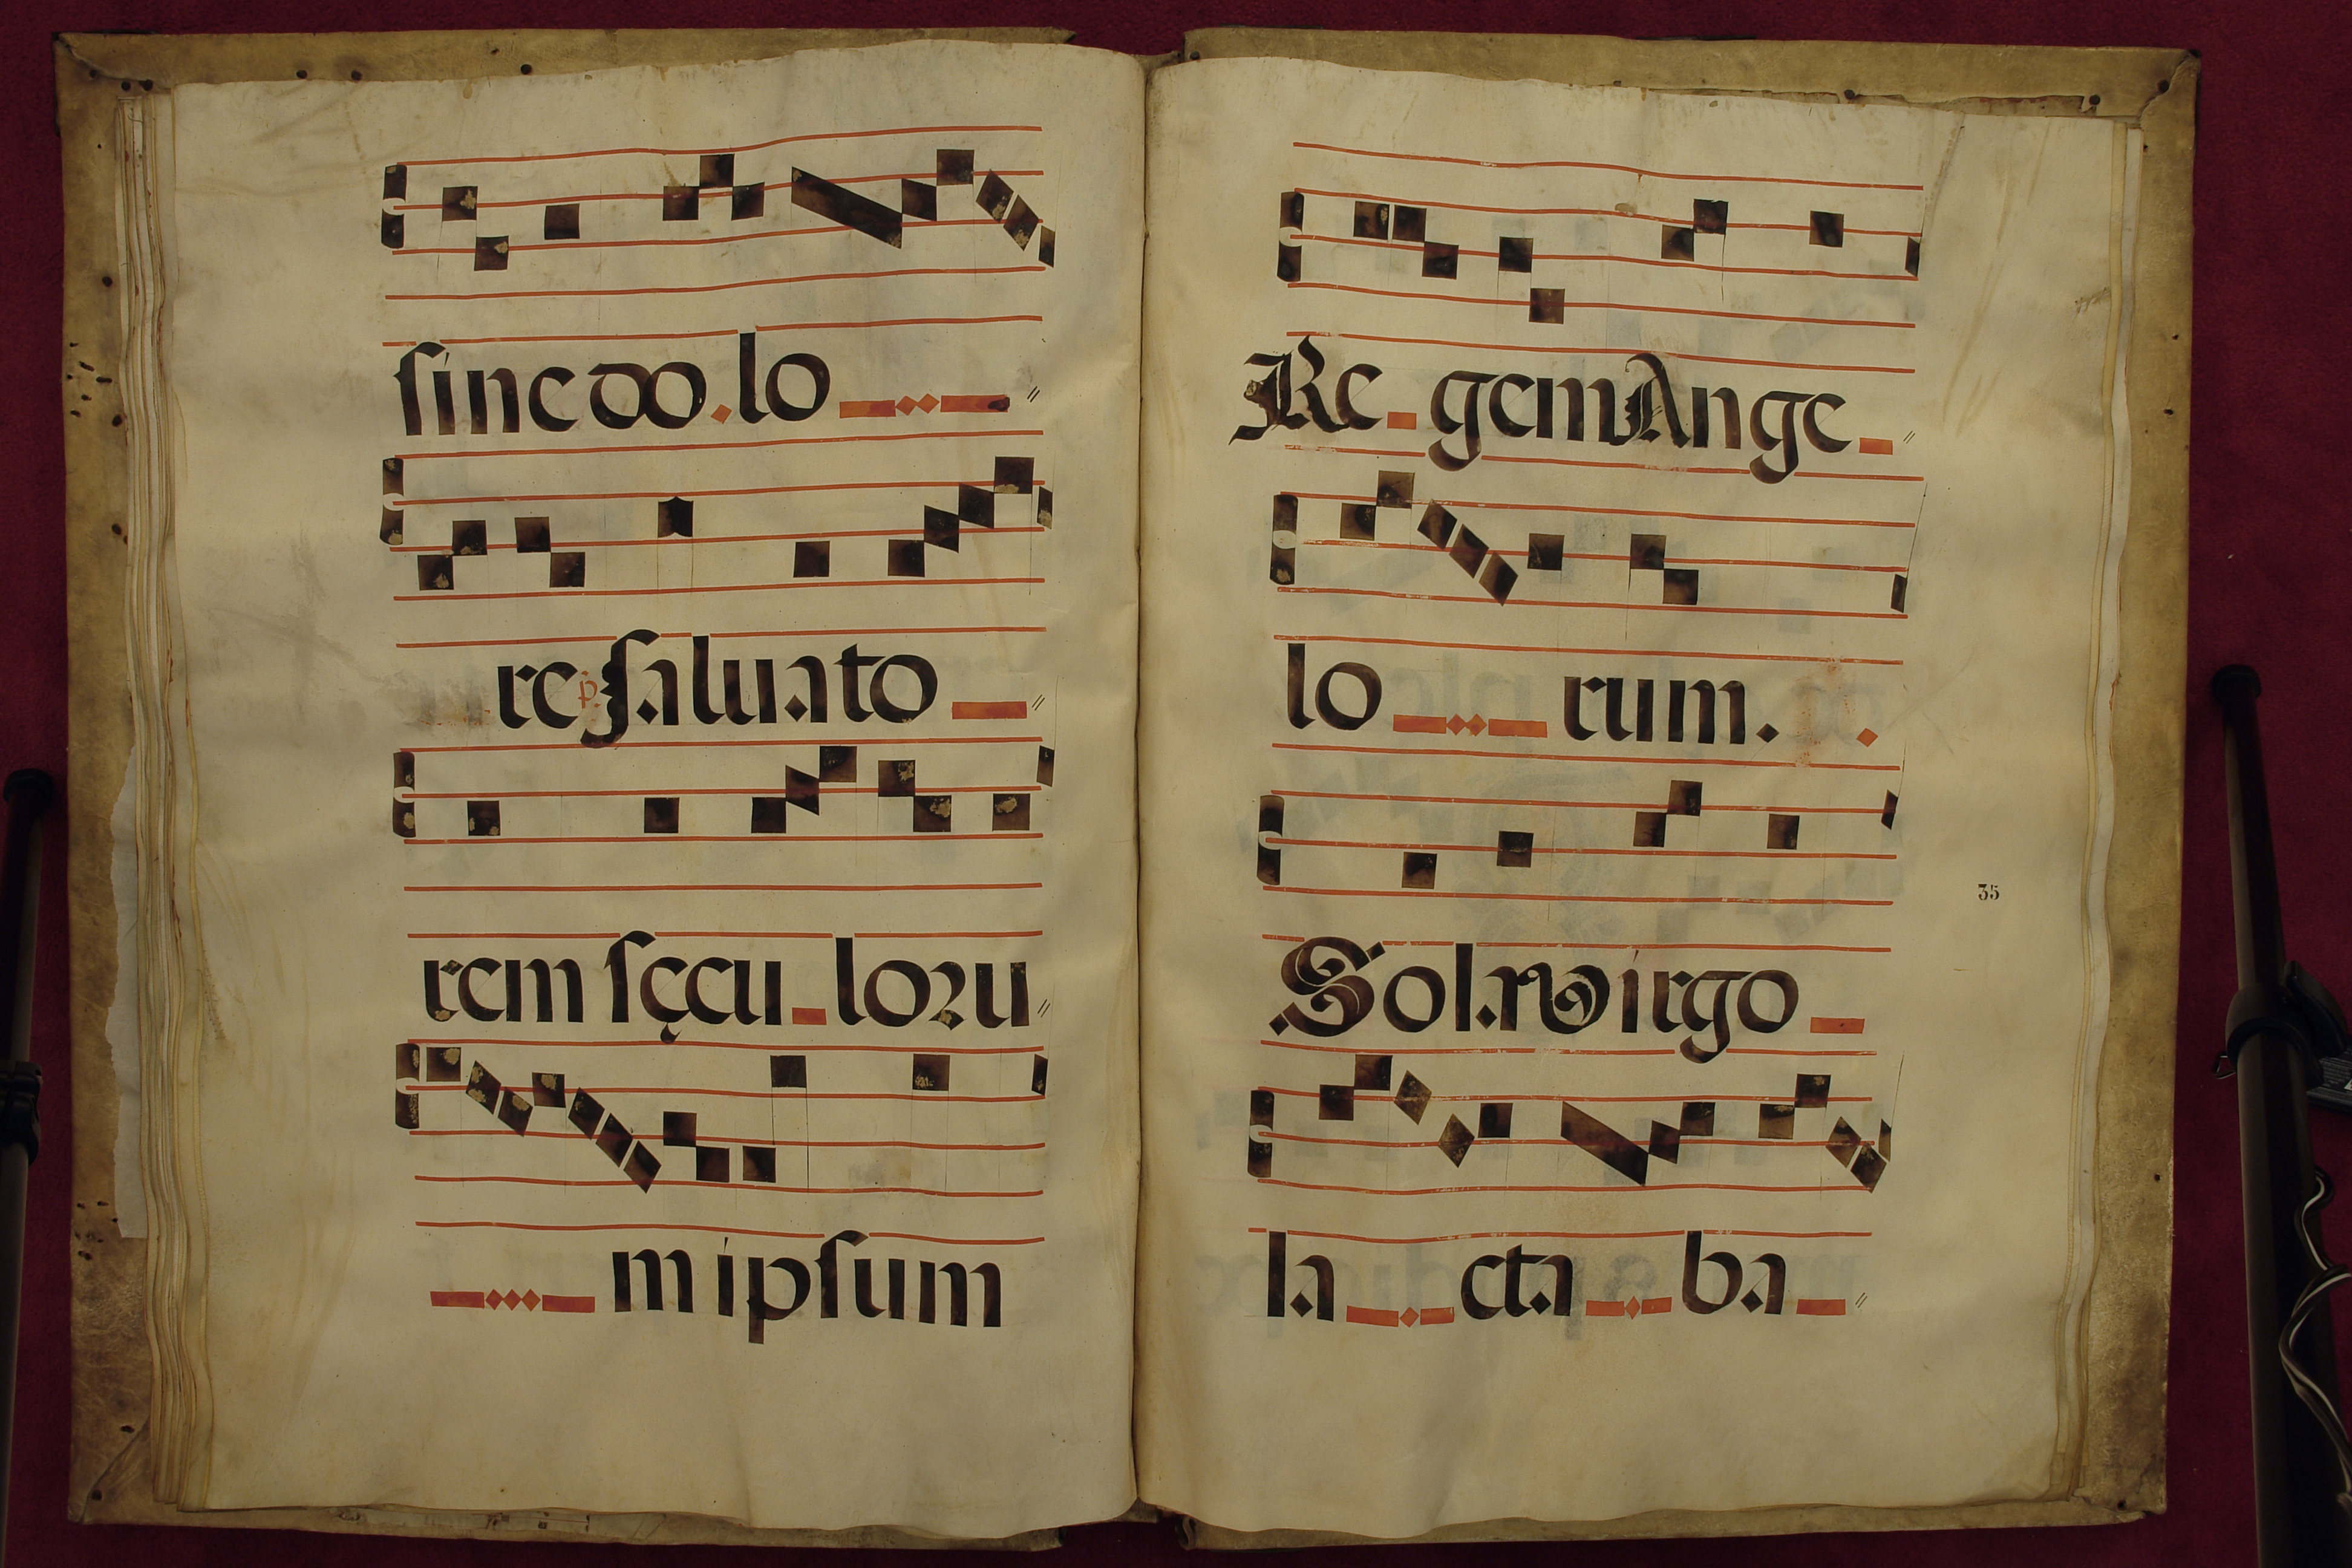 sine do lo
re p. saluato
rem sęcu loru
m ipsum
Re gem Ange
lo rum.
35
Sola virgo
la cta ba